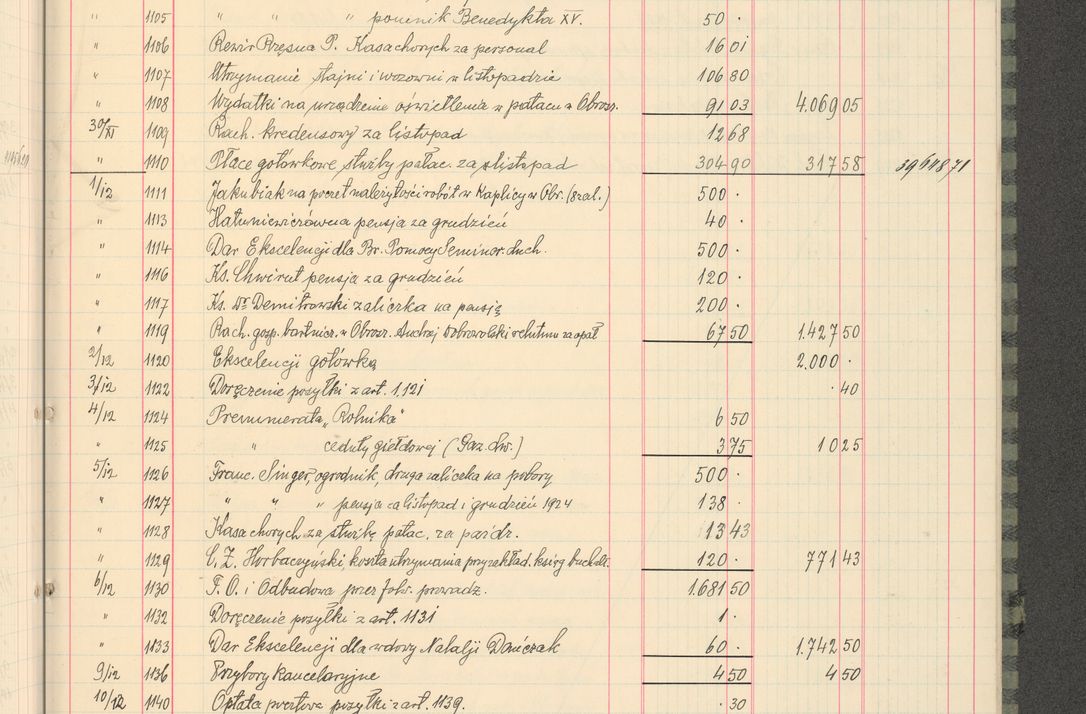 " 1105 " " " pomnik Benedykta XV. 50 ·
" 1106 Rewir Rzęsna P. Kasa chorych za personal 16 01
" 1107 Utrzymanie stajni i wozowni w listopadzie 106 80
" 1108 Wydatki na urządzenie oświetlenia w pałacu w Obrosz. 91 03 4.069 05
30/XI 1109 Rach. kredensowy za listopad 12 68
" 1110 Płace gotówkowe służby pałac. za listopad 304 90 317 58
1/12 1111 Jakubiak na poczet należytości robót w Kaplicy w Obr. (8 zal.) 500 ·
" 1113 Hatuniewiczówna pensja za grudzień 40 ·
" 1114 Dar Ekscelencji dla Br. Pomocy Seminar. duch. 500 ·
" 1116 Ks. Chwirut pensja za grudzień 120 ·
" 1117 Ks. Dr Demitrowski zaliczka na pensję 200 ·
" 1119 Rach. gosp. bartnicz. w Obrosz. Andrzej Dobrowolski za opał 67 50 1.427 50
2/12 1120 Ekscelencji gotówką 2.000 ·
3/12 1122 Doręczenie posyłki z art. 1121 · 40
4/12 1124 Prenumerata „Rolnika" 6 50
" 1125 " ceduły giełdowej (Gaz. Lw.) 3 75 10 25
5/12 1126 Franc. Singer, ogrodnik, druga zaliczka na pobory 500 ·
" 1127 " " " pensja za listopad i grudzień 1924 138 ·
" 1128 Kasa chorych za służbę pałac. za paźdr. 13 43
" 1129 C. Z. Horbaczyński, koszta utrzymania przy zakład. ksiąg buchalt. 120 · 771 43
6/12 1130 T. O. i Odbudowa przez folw. prowadz. 1.681 50
" 1132 Doręczenie posyłki z art. 1131 1 ·
" 1133 Dar Ekscelencji dla wdowy Natalji Dańczak 60 · 1.742 50
9/12 1136 Przybory kancelaryjne 4 50 4 50
10/12 1140 Opłata pocztowa posyłki z art. 1139. · 30